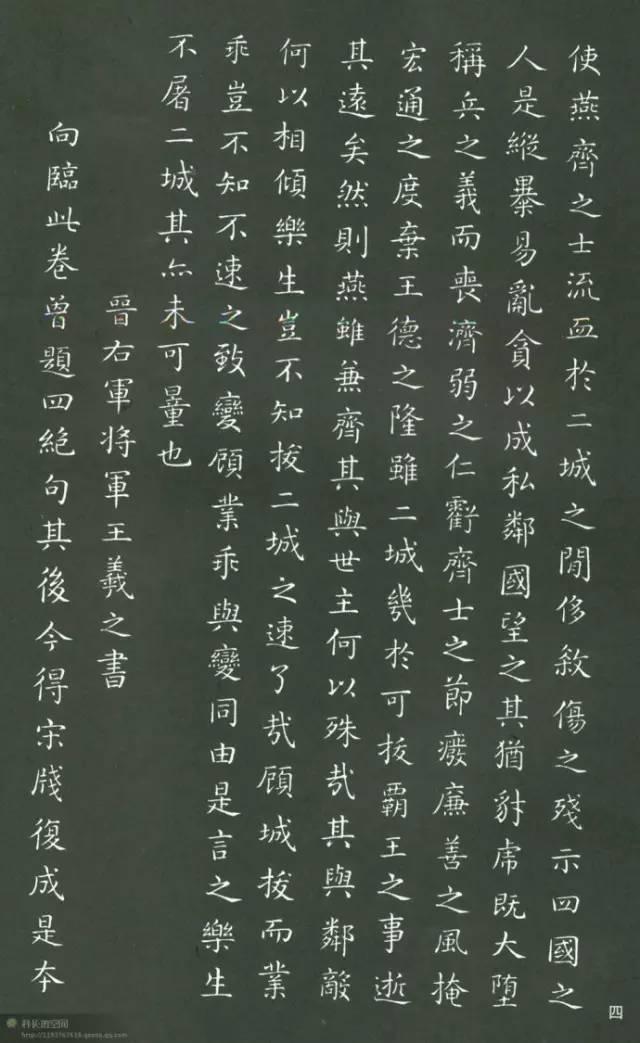 使燕齊之士流血於二城之間侈殺傷之殘示四國之
人是縱暴易亂貪以成私鄰國望之其猶豺虎既大墮
稱兵之義而喪濟弱之仁虧齊士之節癈廉善之風掩
宏通之度棄王德之隆雖二城幾於可拔霸王之事逝
其遠矣然則燕雖兼齊其與世主何以殊哉其與鄰敵
何以相傾樂生豈不知拔二城之速了哉顧城拔而業
乖豈不知不速之致變顧業乖與變同由是言之樂生
不屠二城其亦未可量也
晉右軍將軍王羲之書
向臨此卷曾題四絕句其後今得宋牋復成是本
四
科长的空间